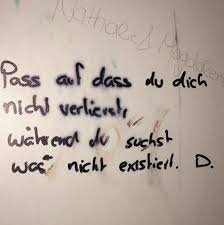 Pass auf dass du dich
nicht verlierst,
während du suchst
was nicht existiert. D.